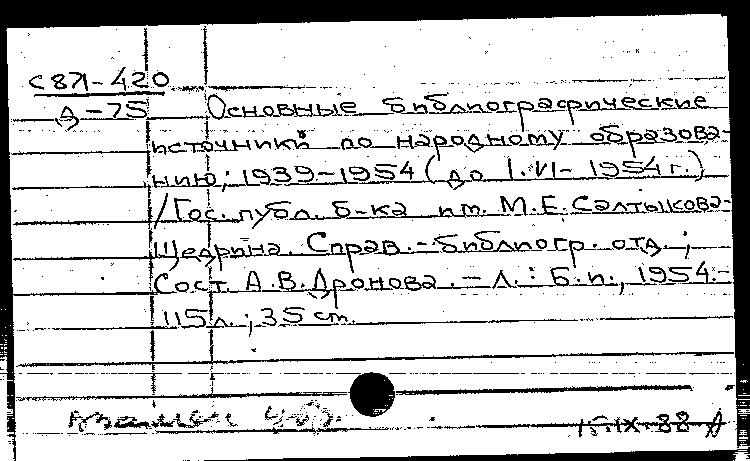 С871-420
Д-75
Основные библиографические
источники по народному образова-
нию; 1939-1954 (до 1.VI-1954г.)
/Гос. публ. б-ка им. М.Е. Салтыкова-
Щедрина. Справ.-библиогр. отд.;
Сост. А.В. Дронова. - Л.: Б.и., 1954.-
115л.; 35 см.
взамен утр.
15.IX.88